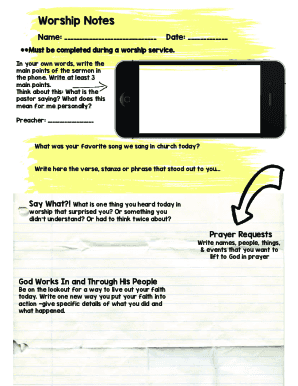 Worship Notes
Name: ____________________ Date: ___________
**Must be completed during a worship service.
In your own words, write the
main points of the sermon in
the phone. Write at least 3
main points.
Think about this: What is the
pastor saying? What does this
mean for me personally?
Preacher: ________________
What was your favorite song we sang in church today?
Write here the verse, stanza or phrase that stood out to you...
__ Say What?! What is one thing you heard today in
worship that surprised you? Or something you
didn't understand? Or had to think twice about?
Prayer Requests
Write names, people, things,
& events that you want to
lift to God in prayer
God Works In and Through His People
Be on the lookout for a way to live out your faith
today. Write one new way you put your faith into
action -give specific details of what you did and
what happened.